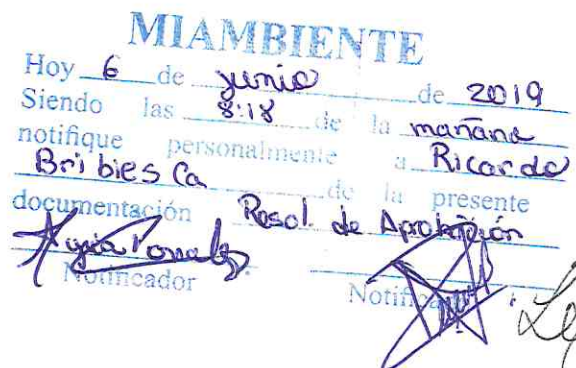 MIAMBIENTE
Hoy 6 de junio de 2019
Siendo las 8:18 de la mañana
notifique personalmente a Ricardo
Bribiesca de la presente
documentación Resol. de Aprobación
Notificador